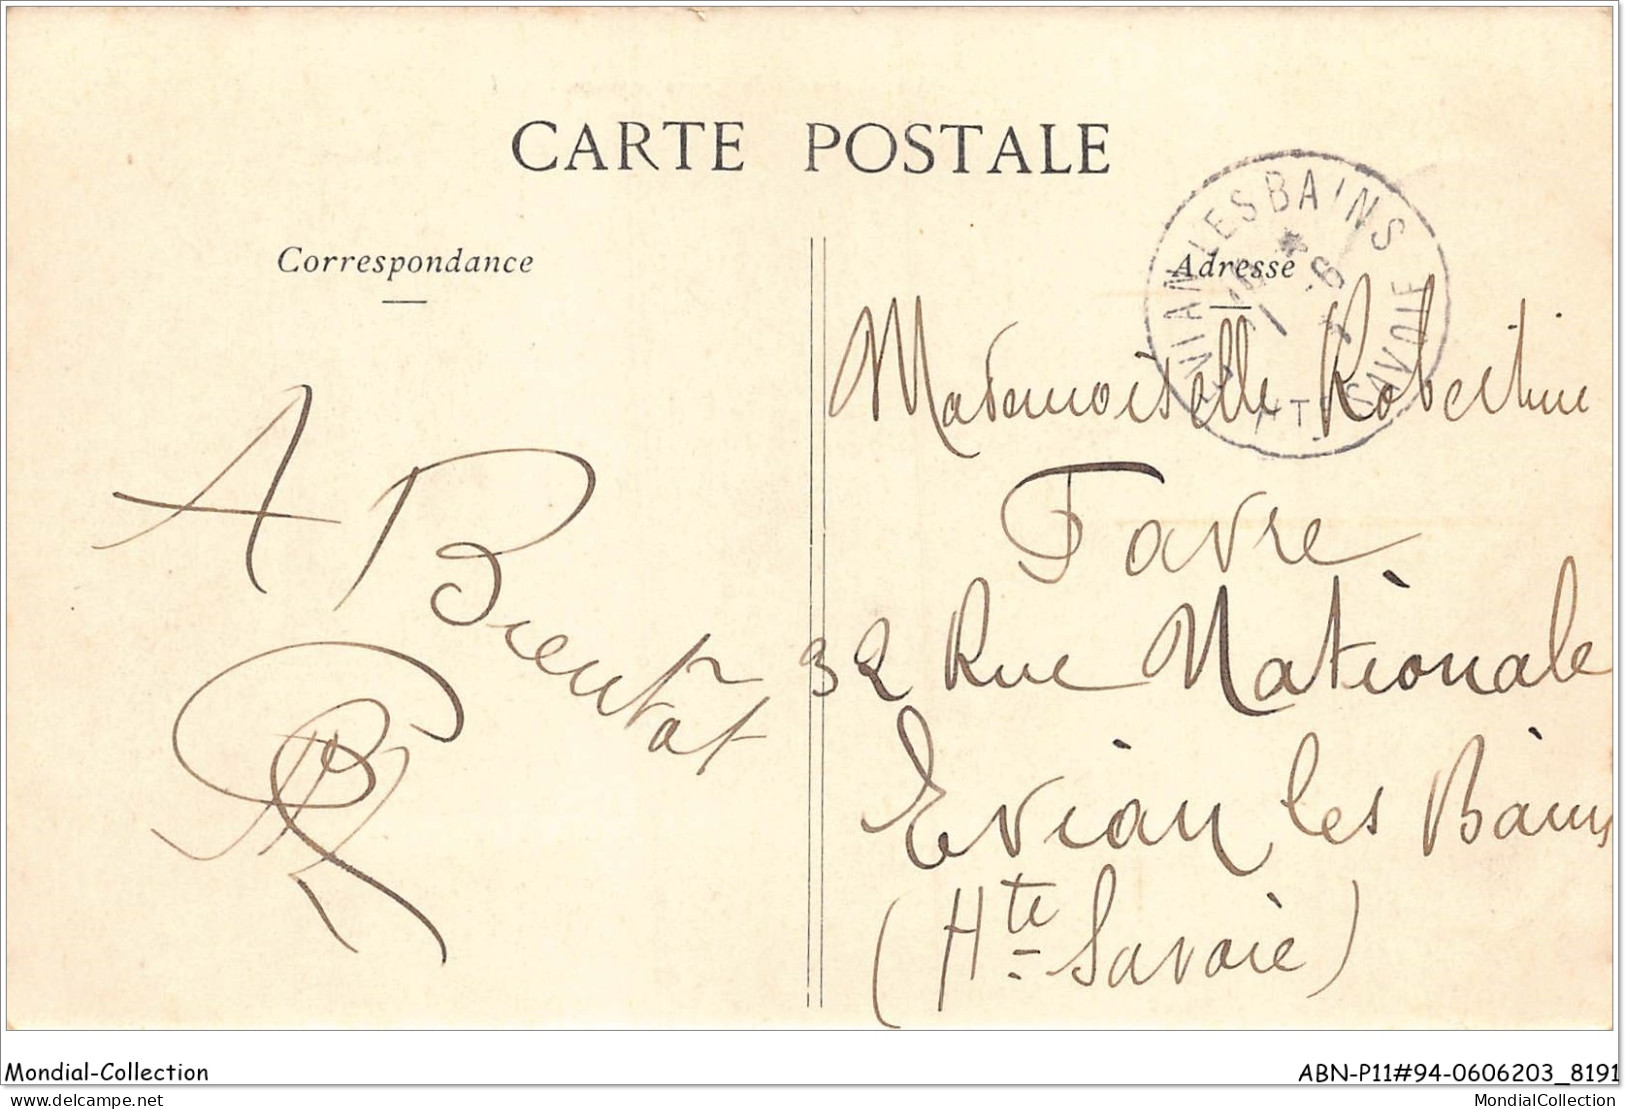 CARTE POSTALE
Correspondance
A Bientot
Adresse
EVIAN LES BAINS
HTE SAVOIE
Mademoiselle Robertine
Favre
32 Rue Nationale
Evian les Bains
(Hte Savoie)
Mondial-Collection
ABN-P11#94-0606203_8191
delcampe.net
MondialCollection